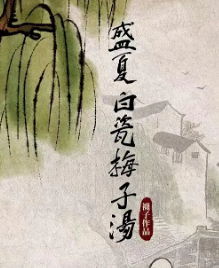 盛夏白瓷梅子湯
褲子作品